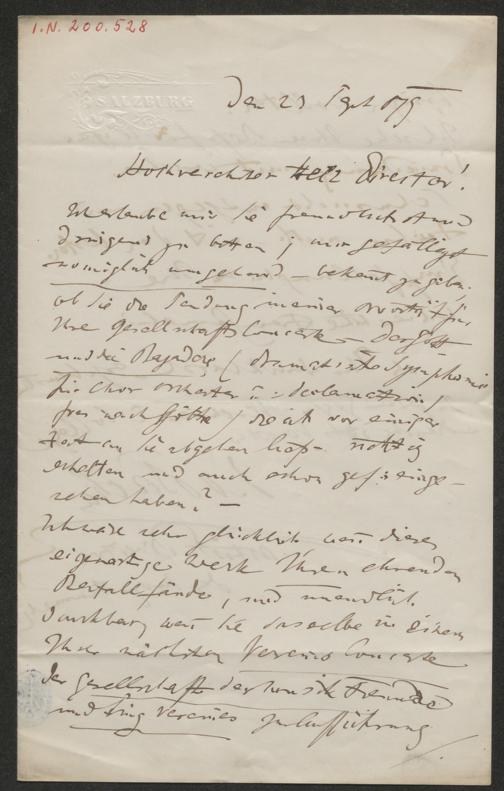 I.N. 200.528
SALZBURG
Den 23 Sept 875
Hochverehrter Herr Director!
Ich erlaube mir Sie freundlichst und
dringend zu bitten, mir gefälligst
womöglich umgehend – bekannt zu geben,
ob Sie die Sendung meiner für
Ihre Gesellschafts Concerte – Der Gott
und die Bajadere / dramatische Symphonie
für Chor Orchester u: Declamation /
frei nach Göthe / die ich vor einiger
Zeit an Sie abgehen ließ – richtig
erhalten und auch schon gef: einge-
sehen haben? –
Ich wäre sehr glücklich wenn dieses
eigenartige Werk Ihren ehrenden
Beifall fände, und unendlich
dankbar, wenn Sie dasselbe in einem
Ihrer nächsten Vereins Concerte
der Gesellschaft der Musik Freunde
und Sing Vereines zur Aufführung